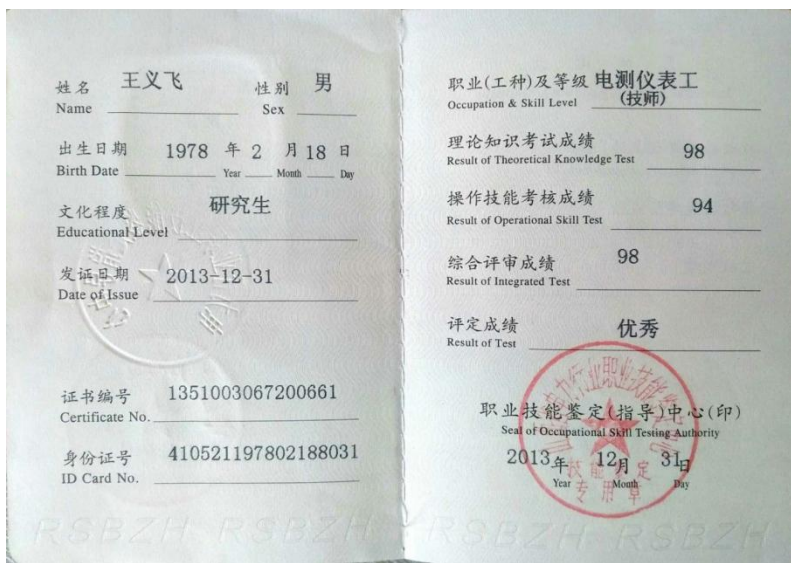 姓名 王义飞 性别 男
Name Sex
出生日期 1978 年 2 月 18 日
Birth Date Year Month Day
文化程度 研究生
Educational Level
发证日期 2013-12-31
Date of Issue
证书编号 1351003067200661
Certificate No.
身份证号 410521197802188031
ID Card No.
职业(工种)及等级 电测仪表工
Occupation & Skill Level (技师)
理论知识考试成绩 98
Result of Theoretical Knowledge Test
操作技能考核成绩 94
Result of Operational Skill Test
综合评审成绩 98
Result of Integrated Test
评定成绩 优秀
Result of Test
职业技能鉴定(指导)中心(印)
Seal of Occupational Skill Testing Authority
2013年 12月 31日
Year Month Day
技能鉴定
专用章
RSBZH RSBZH RSBZH RSBZH